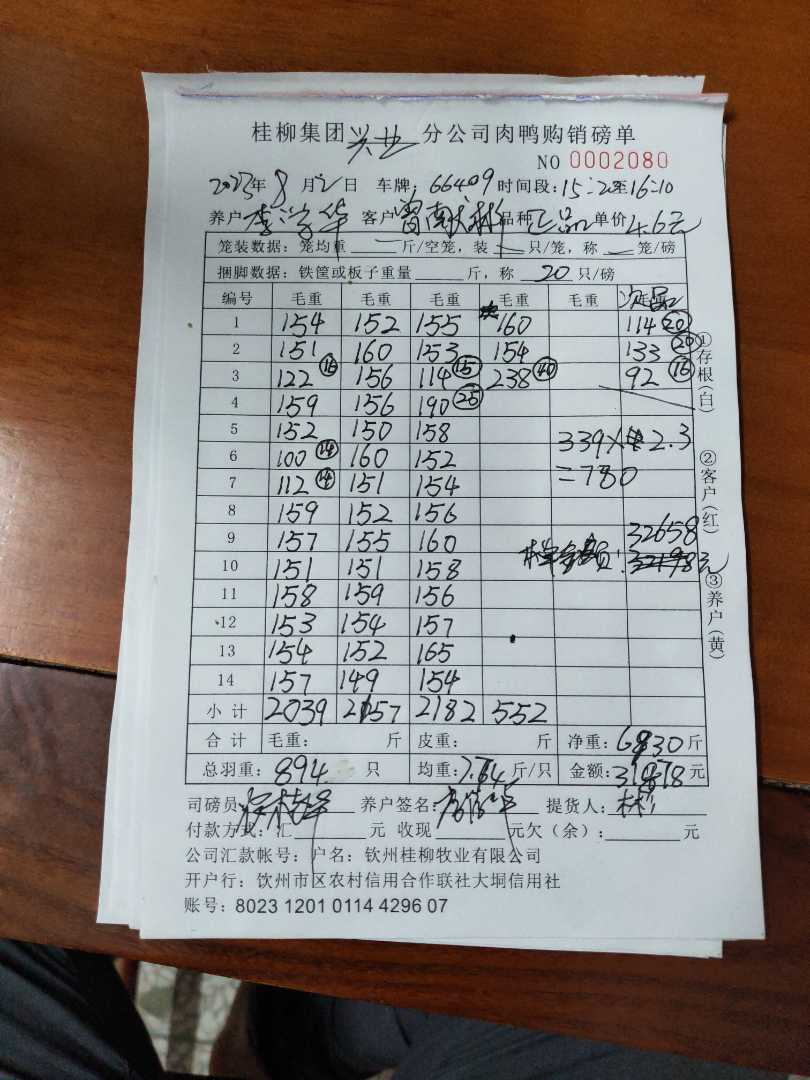 桂柳集团兴业分公司肉鸭购销磅单
NO 0002080
2023年8月2日 车牌:66409 时间段:15:20至16:10
养户 李 华 客户 品种 正品 单价4.6元
笼装数据:笼均重 斤/空笼,装 只/笼,称 笼/磅
捆脚数据:铁筐或板子重量 斤,称 20 只/磅
编号 毛重 毛重 毛重 毛重 毛重 次品
1 154 152 155 160 114 ⑳
2 151 160 153 154 133 ⑳
3 122 ⑯ 156 114 ⑮ 238 ㊵ 92 ⑯
4 159 156 190 ㉕
5 152 150 158 339× 2.3
6 100 ⑭ 160 152 =780
7 112 ⑭ 151 154
8 159 152 156
9 157 155 160 32658
10 151 151 158 元
11 158 159 156
12 153 154 157
13 154 152 165
14 157 149 154
小计 2039 2157 2182 552
合计 毛重: 斤 皮重: 斤 净重:6930斤
总羽重:894 只 均重:7.64斤/只 金额:31878元
司磅员 养户签名: 提货人:林
付款方式:汇 元 收现 元欠(余): 元
公司汇款帐号:户名:钦州桂柳牧业有限公司
开户行:饮州市区农村信用合作联社大垌信用社
账号:8023 1201 0114 4296 07
①存根(白)
②客户(红)
③养户(黄)